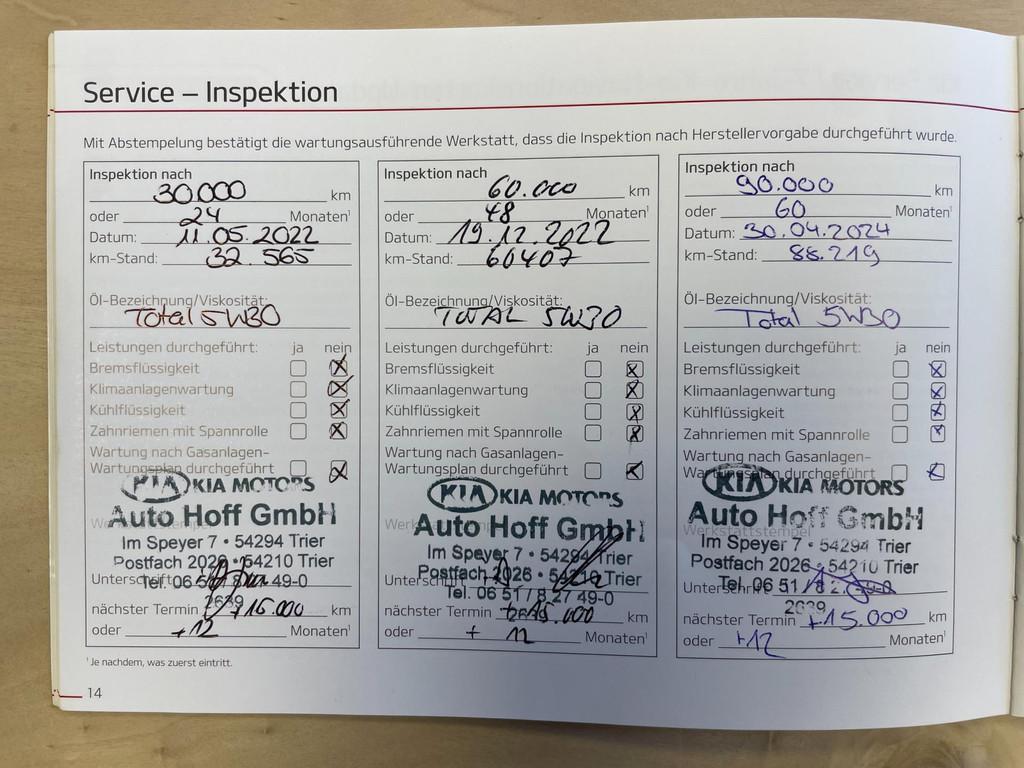 Service – Inspektion
Mit Abstempelung bestätigt die wartungsausführende Werkstatt, dass die Inspektion nach Herstellervorgabe durchgeführt wurde.
Inspektion nach
30.000 km
oder 24 Monaten¹
Datum: 11.05.2022
km-Stand: 32.565
Öl-Bezeichnung/Viskosität:
Total 5W30
Leistungen durchgeführt: ja nein
Bremsflüssigkeit
Klimaanlagenwartung
Kühlflüssigkeit
Zahnriemen mit Spannrolle
Wartung nach Gasanlagen-
Wartungsplan durchgeführt
KIA KIA MOTORS
Auto Hoff GmbH
Im Speyer 7 • 54294 Trier
Postfach 2026 • 54210 Trier
Tel. 06 51 / 8 27 49-0
Unterschrift
2639
nächster Termin +15.000 km
oder +12 Monaten¹
Inspektion nach
60.000 km
oder 48 Monaten¹
Datum: 19.12.2022
km-Stand: 60407
Öl-Bezeichnung/Viskosität:
TOTAL 5W30
Leistungen durchgeführt: ja nein
Bremsflüssigkeit
Klimaanlagenwartung
Kühlflüssigkeit
Zahnriemen mit Spannrolle
Wartung nach Gasanlagen-
Wartungsplan durchgeführt
KIA KIA MOTORS
Auto Hoff GmbH
Im Speyer 7 • 54294 Trier
Postfach 2026 • 54210 Trier
Unterschrift
Tel. 06 51 / 8 27 49-0
nächster Termin +15.000 km
oder + 12 Monaten¹
Inspektion nach
90.000 km
oder 60 Monaten¹
Datum: 30.04.2024
km-Stand: 88.219
Öl-Bezeichnung/Viskosität:
Total 5W30
Leistungen durchgeführt: ja nein
Bremsflüssigkeit
Klimaanlagenwartung
Kühlflüssigkeit
Zahnriemen mit Spannrolle
Wartung nach Gasanlagen-
Wartungsplan durchgeführt
KIA KIA MOTORS
Auto Hoff GmbH
Werkstattstempel
Im Speyer 7 • 54294 Trier
Postfach 2026 • 54210 Trier
Unterschrift
Tel. 06 51 / 8 27 49-0
2639
nächster Termin +15.000 km
oder +12 Monaten¹
¹ Je nachdem, was zuerst eintritt.
14